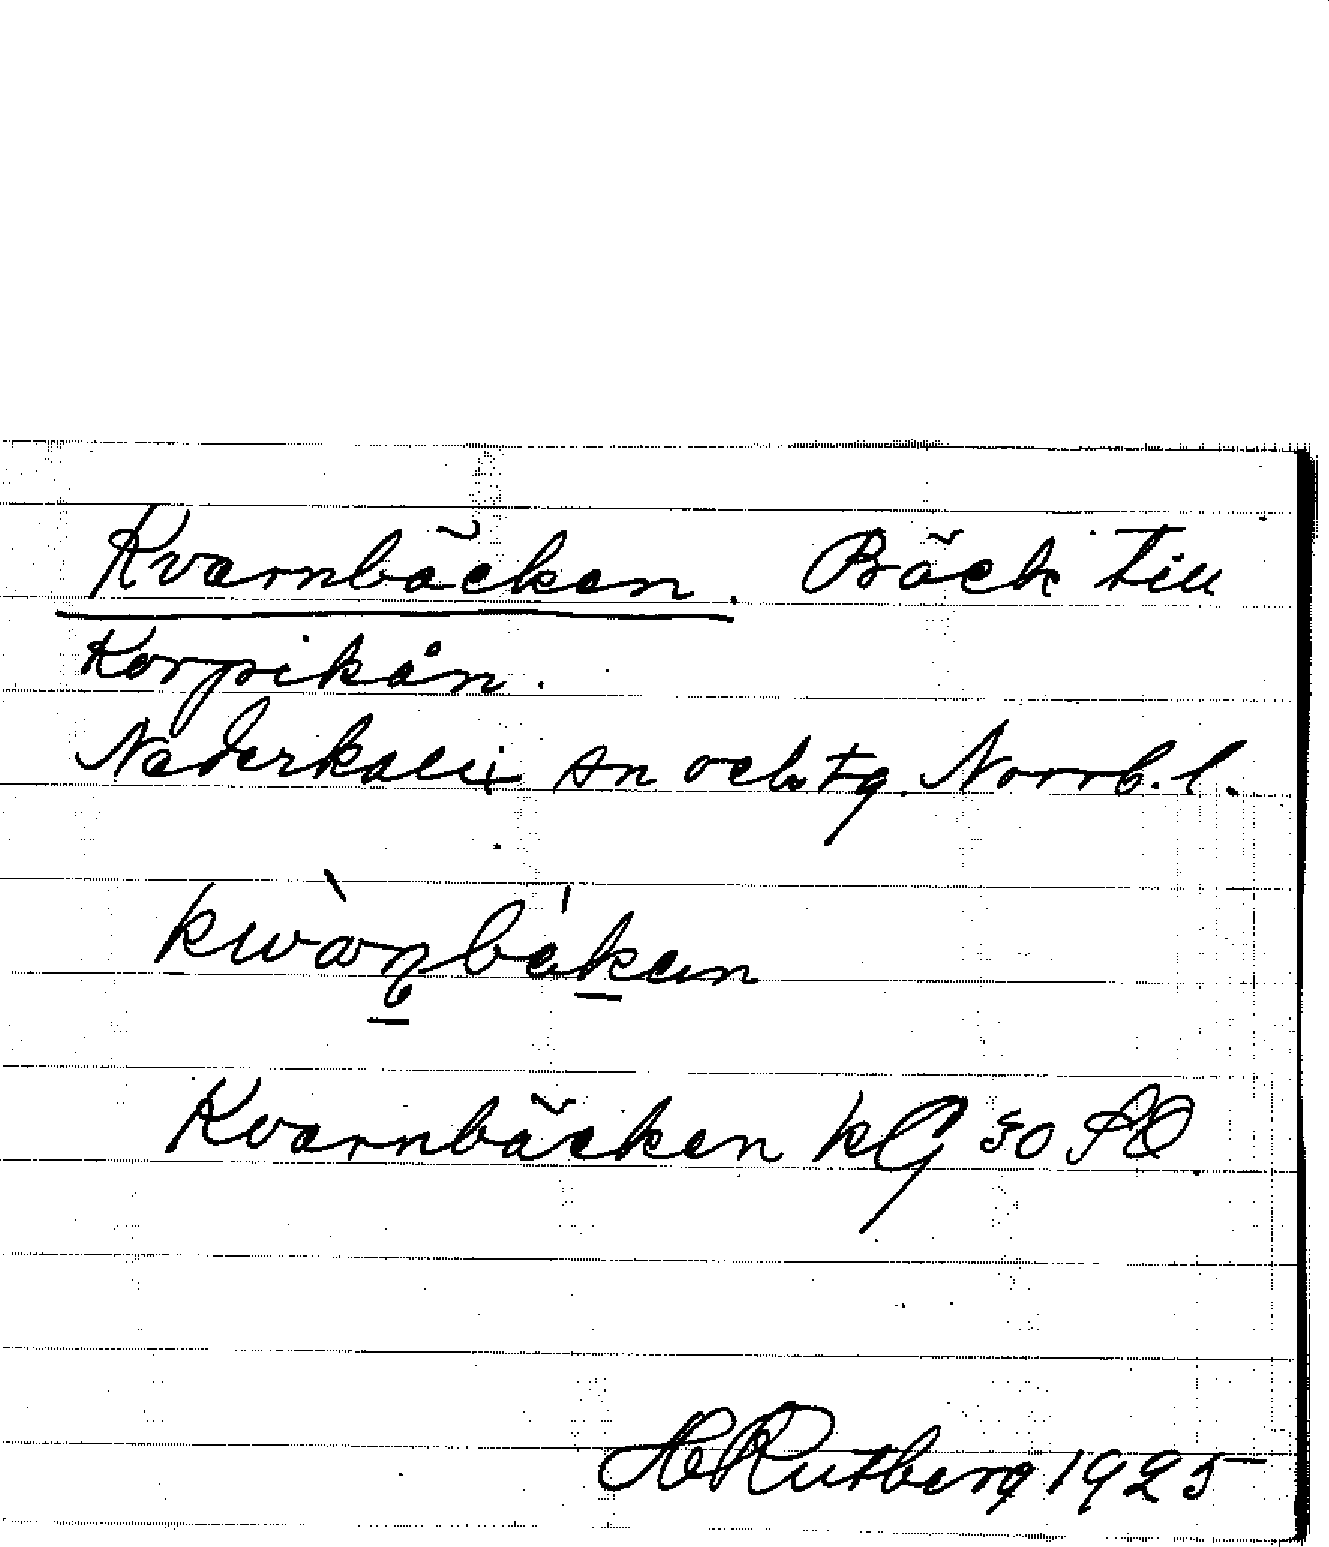 Kvarnbäcken. Bäck till
Korpikån.
Nederkalix sn och tg. Norrb. l.
Kvarnbäcken kG 50 SO
H Rutberg 1925